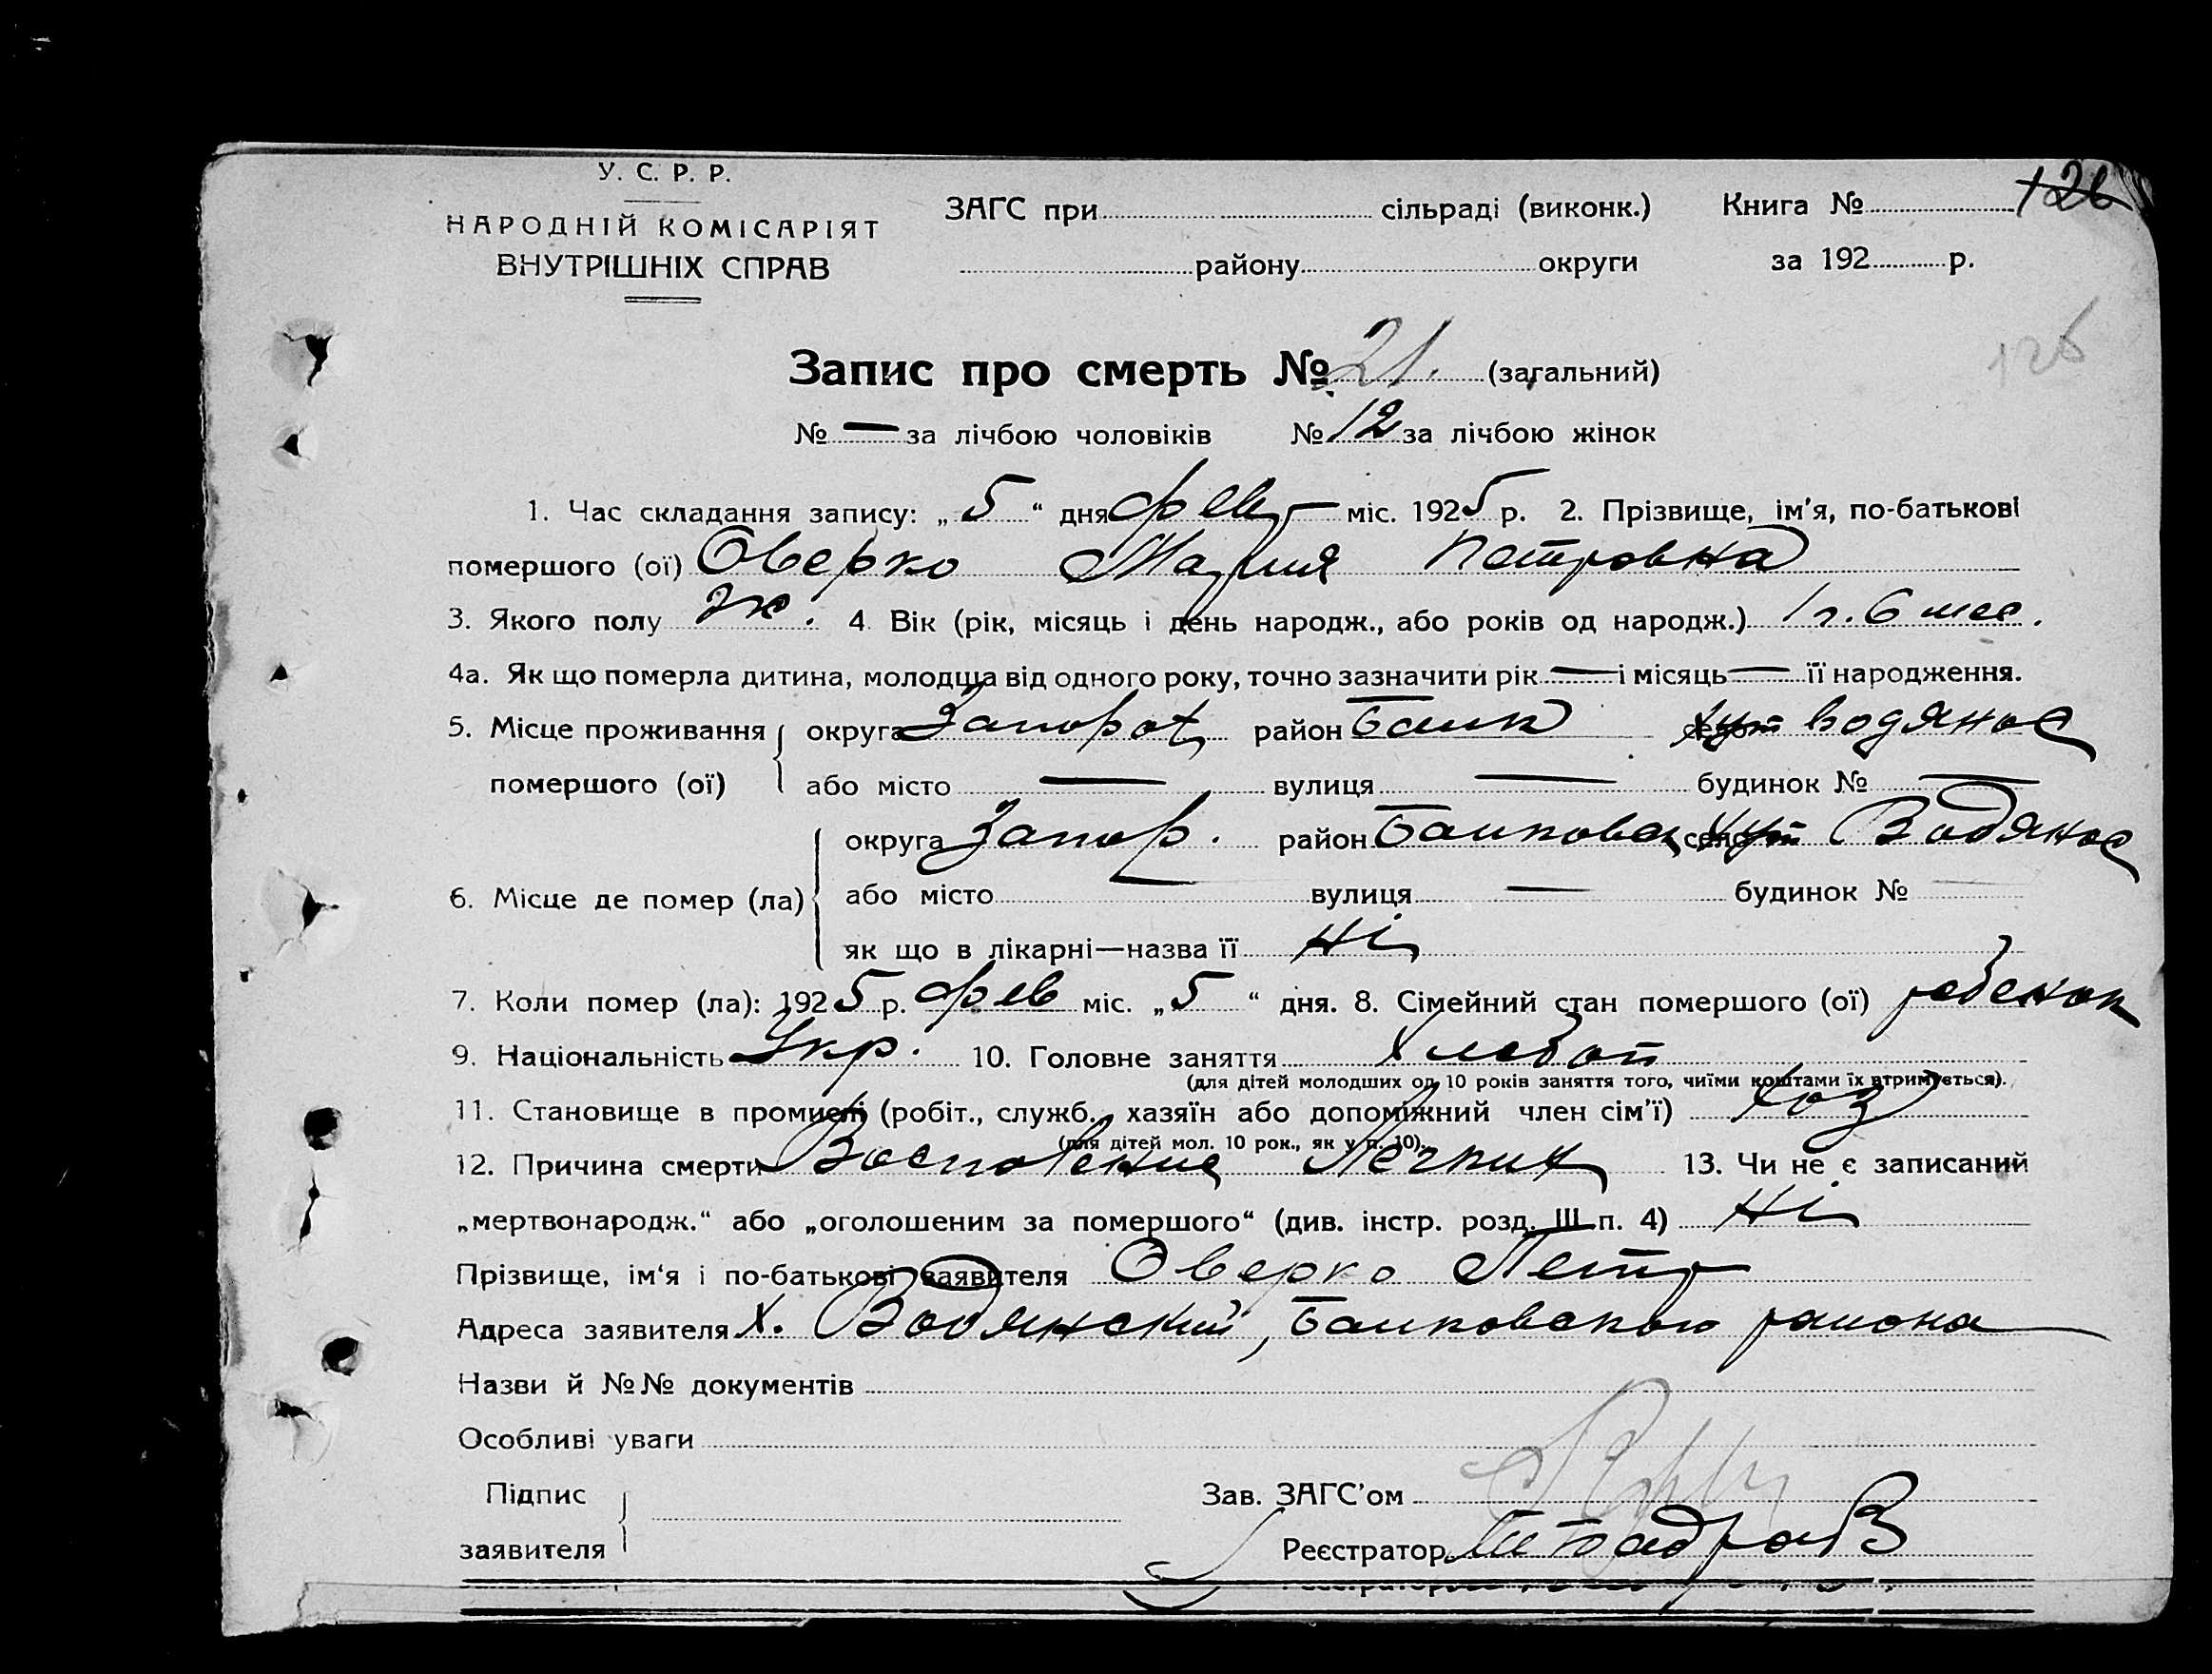 У. С. Р. Р.
НАРОДНІЙ КОМІСАРІЯТ
ВНУТРІШНІХ СПРАВ
ЗАГС при сільраді (виконк.) Книга № 126
району округи за 192 р.
126
Запис про смерть № 21. (загальний)
№ — за лічбою чоловіків № 12 за лічбою жінок
1. Час складання запису: „ 5 “ дня фев міс. 1925 р. 2. Прізвище, ім'я, по-батькові
помершого (ої) Оверко Мария Петровна
3. Якого полу ж. 4. Вік (рік, місяць і день народж., або років од народж.) 1 г. 6 мес.
4а. Як що померла дитина, молодща від одного року, точно зазначити рік — і місяць — її народження.
5. Місце проживання округа Запорож район Балк хут Водяное
помершого (ої) або місто — вулиця — будинок № —
округа Запор. район Балковск село хут Водяное
6. Місце де помер (ла) або місто — вулиця — будинок №
як що в лікарні—назва її Ні
7. Коли помер (ла): 1925 р. фев міс. „ 5 “ дня. 8. Сімейний стан помершого (ої) ребенок
9. Національність Укр. 10. Головне заняття Хлебоп
(для дітей молодших од 10 років заняття того, чиїми коштами їх втримується).
11. Становище в промислі (робіт., служб., хазяїн або допоміжний член сім'ї) хоз
(для дітей мол. 10 рок., як у п. 10).
12. Причина смерти Воспаление Легких 13. Чи не є записаний
„мертвонародж.“ або „оголошеним за помершого“ (див. інстр. розд. III п. 4) Ні
Прізвище, ім'я і по-батькові заявителя Оверко Петр
Адреса заявителя х. Водянский, Балковского района
Назви й №№ документів
Особливі уваги
Підпис Зав. ЗАГС'ом
заявителя Реєстратор